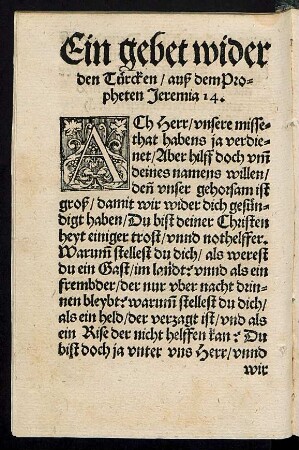 Ein gebet wider
den Türcken / auß dem Pro-
pheten Jeremia 14.
ACh Herr / vnsere misse-
that habens ja verdie-
net / Aber hilff doch vm̃
deines namens willen /
deñ vnser gehorsam ist
groß / damit wir wider dich gesün-
digt haben / Du bist deiner Christen
heyt einiger trost / vnnd nothelffer.
Warum̃ stellest du dich / als werest
du ein Gast / im landt? vnnd als ein
frembder / der nur vber nacht drin-
nen bleybt? warum̃ stellest du dich /
als ein held / der verzagt ist / vnd als
ein Rise der nicht helffen kan? Du
bist doch ja vnter vns Herr / vnnd
wir